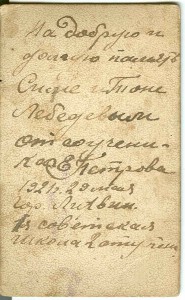 На добрую и
долгую память
Симе и Тоне
Лебедевым
от соучени-
ка Е Петрова
1921 г. 29 мая
гор. Лихвин.
1 советская
школа 2 ступени